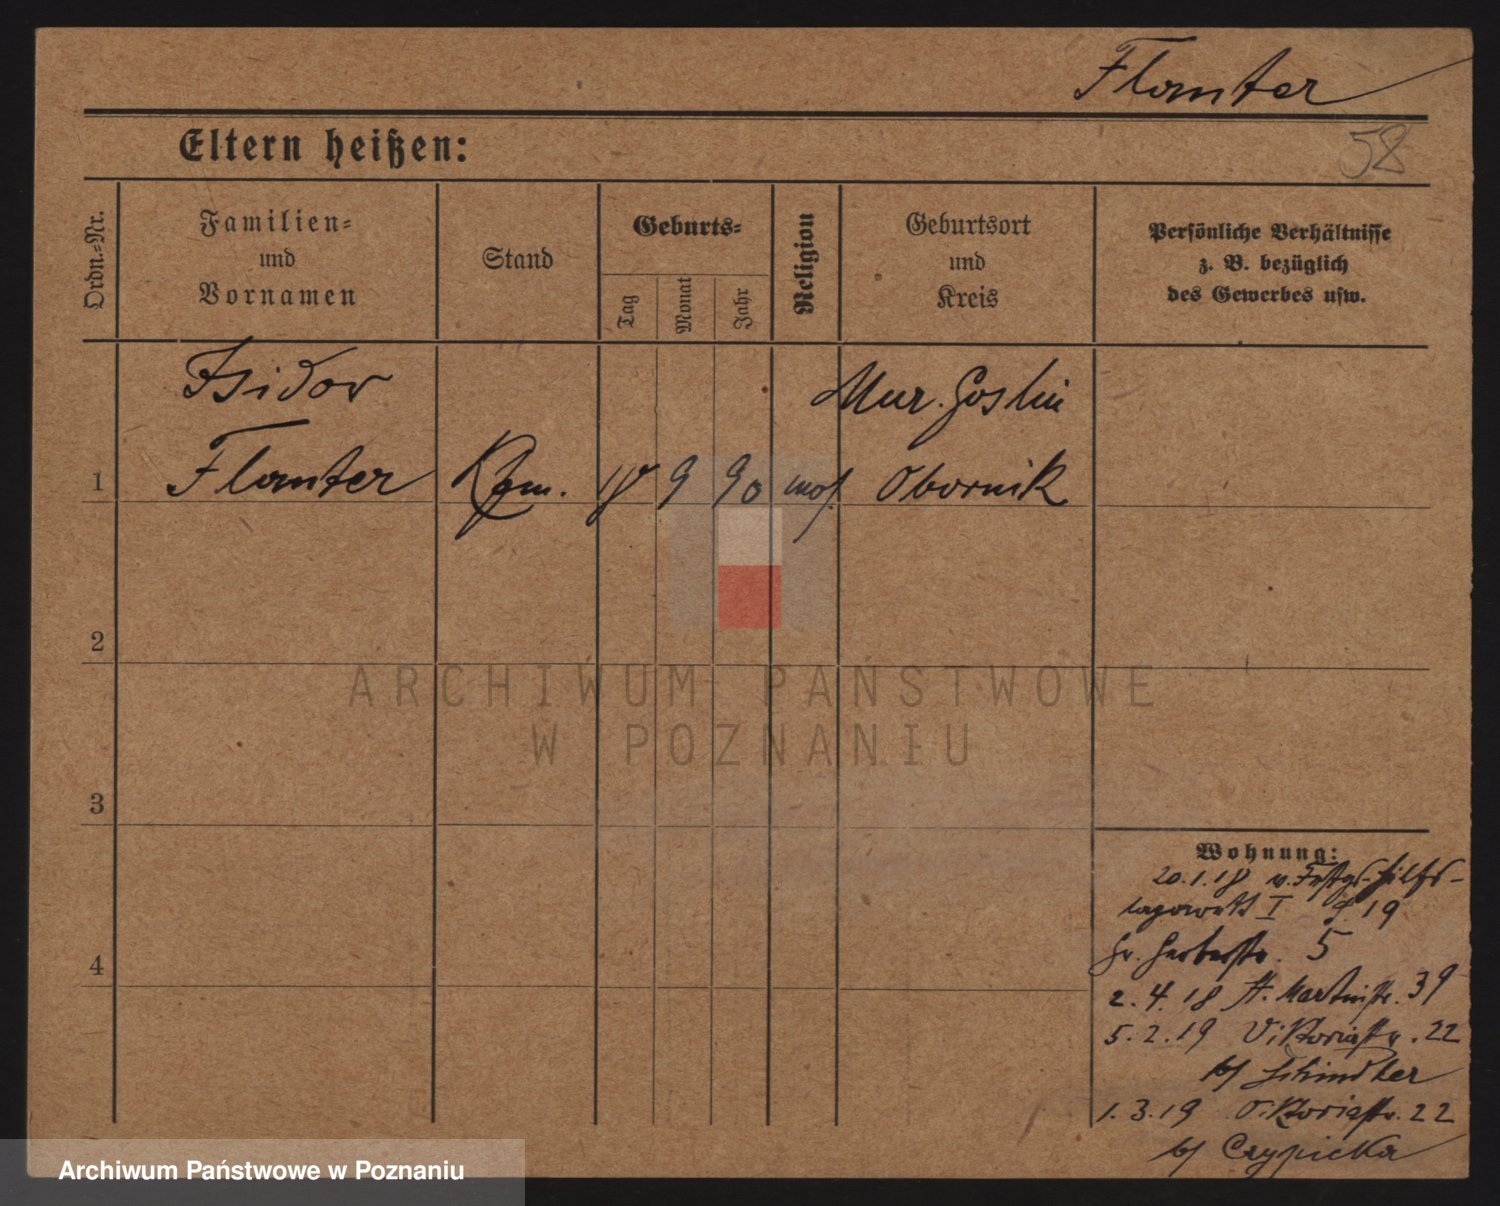 Flanter
58
Eltern heißen:
Ordn.-Nr.
Familien-
und
Vornamen
Stand
Geburts-
Tag
Monat
Jahr
Religion
Geburtsort
und
Kreis
Persönliche Verhältnisse
z. B. bezüglich
des Gewerbes usw.
Isidor
Mur. Goslin
1 Flanter Kfm. 18 9 90 mos. Obornik
2
3
4
ARCHIWUM PAŃSTWOWE
W POZNANIU
Wohnung:
20.1.18 v. Festgs-Hilfs-
lazarett I 19
Gr. Gerberstr. 5
2.4.18 St. Martinstr. 39
5.2.19 Viktoriastr. 22
b/ Schindler
1.3.19 Viktoriastr. 22
b/ Czypicka
Archiwum Państwowe w Poznaniu